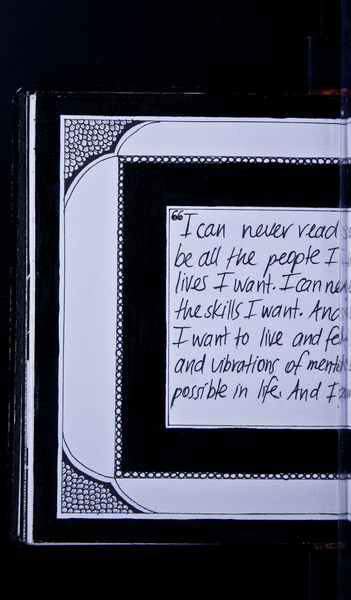 “I can never read
be all the people I
lives I want. I can
the skills I want. And
I want to live and
and vibrations of
possible in life. And I